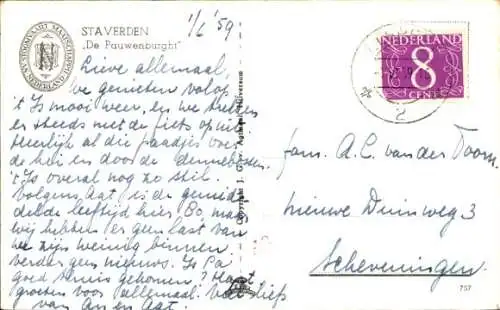 STAVERDEN
„De Pauwenburght"
1/6 '59
Lieve allemaal,
we genieten volop
't Is mooi weer, en we trekken
er steeds met de fiets op uit
Heerlijk al die paadjes over
de hei en door de dennebossen.
't Is overal nog zo stil.
Volgens Aat, is de gemid-
delde leeftijd hier 80, maar
wij hebben er geen last van
we zijn weinig binnen
verder geen nieuws. Is Pa
goed thuis gekomen? Hart.
groeten voor allemaal. Veel liefs
van An en Aat.
Copyright J. G. Hilversum
NEDERLAND
8
CENT
2
fam. A.C. van der Toorn.
nieuwe Duinweg 3
Scheveningen.
757